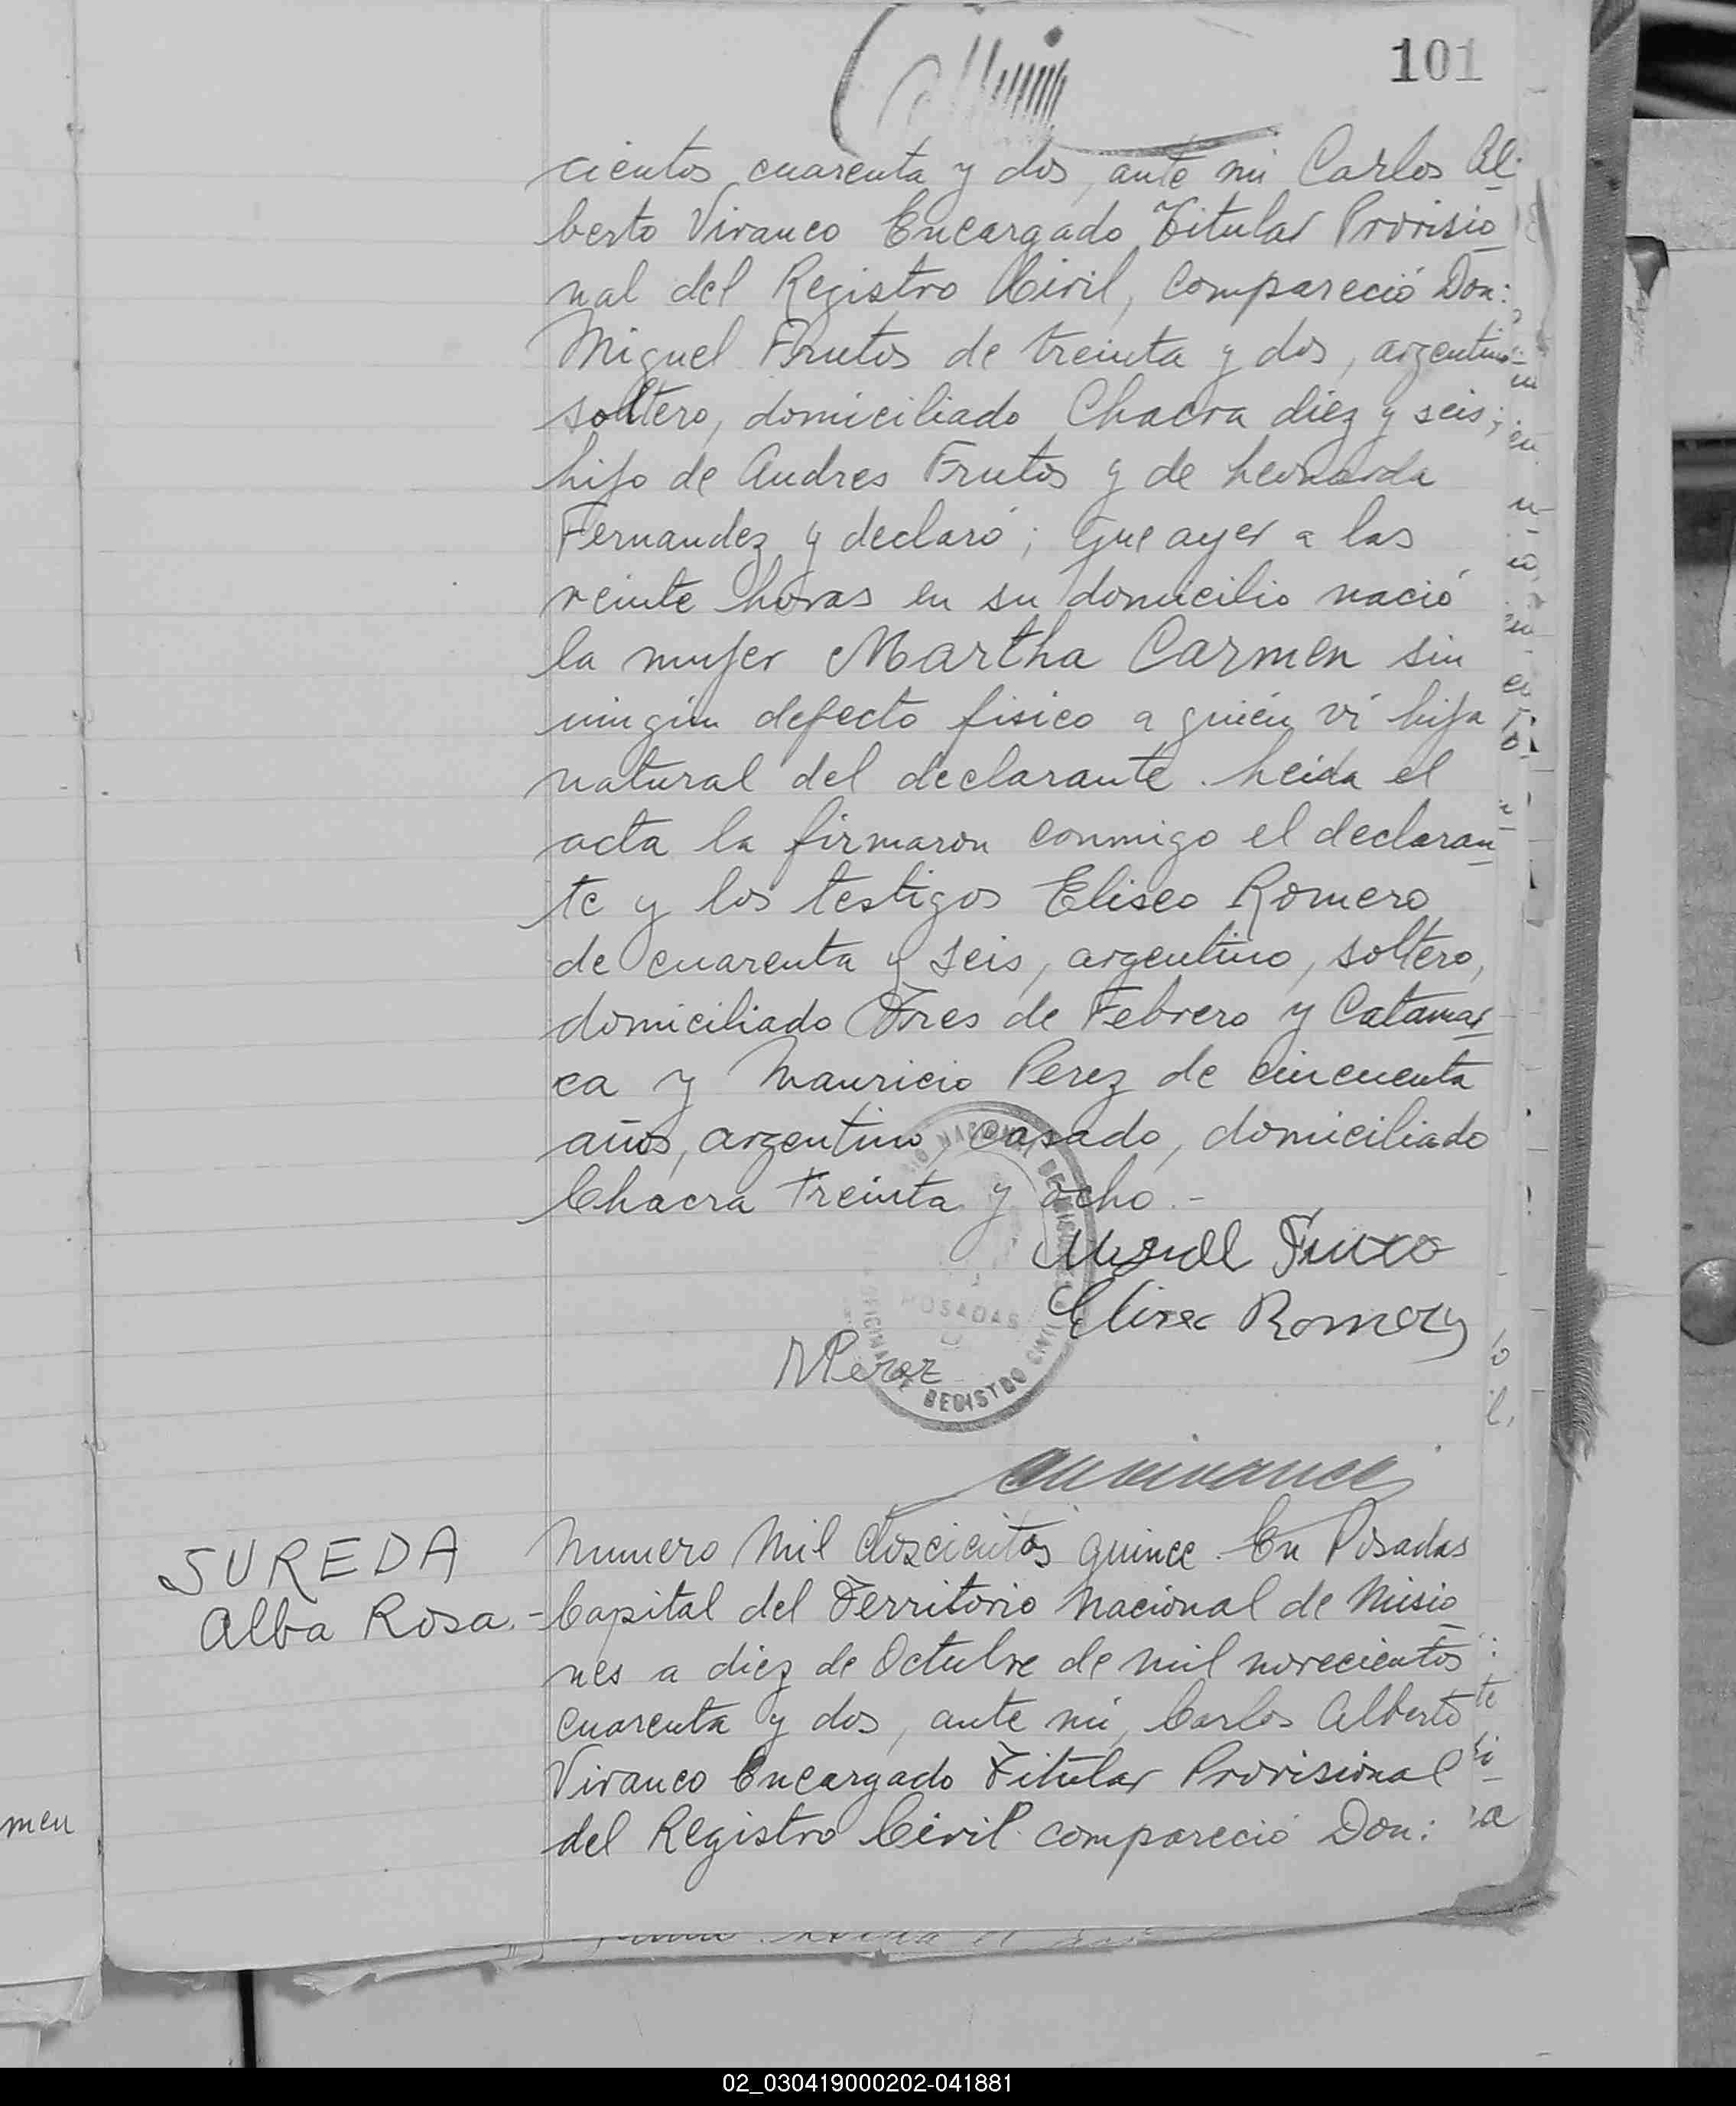 101
cientos cuarenta y dos, ante mi Carlos Al-
berto Vivanco Encargado Titular Provisio-
nal del Registro Civil, compareció Don:
Miguel Frutos de treinta y dos, argentino
soltero, domiciliado Chacra diez y seis;
hijo de Andres Frutos y de Leonarda
Fernandez y declaró; que ayer a las
veinte horas en su domicilio nació
la mujer Martha Carmen sin
ningún defecto fisico a quién ví hija
natural del declarante. Leida el
acta la firmaron conmigo el declaran-
te y los testigos Eliseo Romero
de cuarenta y seis, argentino, soltero,
domiciliado Tres de Febrero y Catamar-
ca y Mauricio Perez de cincuenta
años, argentino, casado, domiciliado
Chacra treinta y ocho.-
Miguel Frutos
Eliseo Romero
MPerez
POSADAS
OFICINA DE REGISTRO CIVIL
SUREDA
Alba Rosa.-
Numero Mil doscientos quince. En Posadas
Capital del Territorio Nacional de Misio-
nes a diez de Octubre de mil novecientos
cuarenta y dos, ante mi, Carlos Alberto
Vivanco Encargado Titular Provisional
del Registro Civil compareció Don:
men
02_030419000202-041881